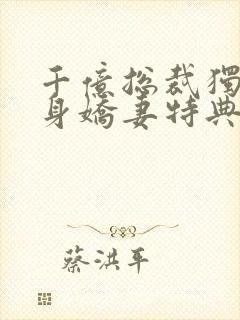 千億總裁獨
身嬌妻特典
蔡洪平